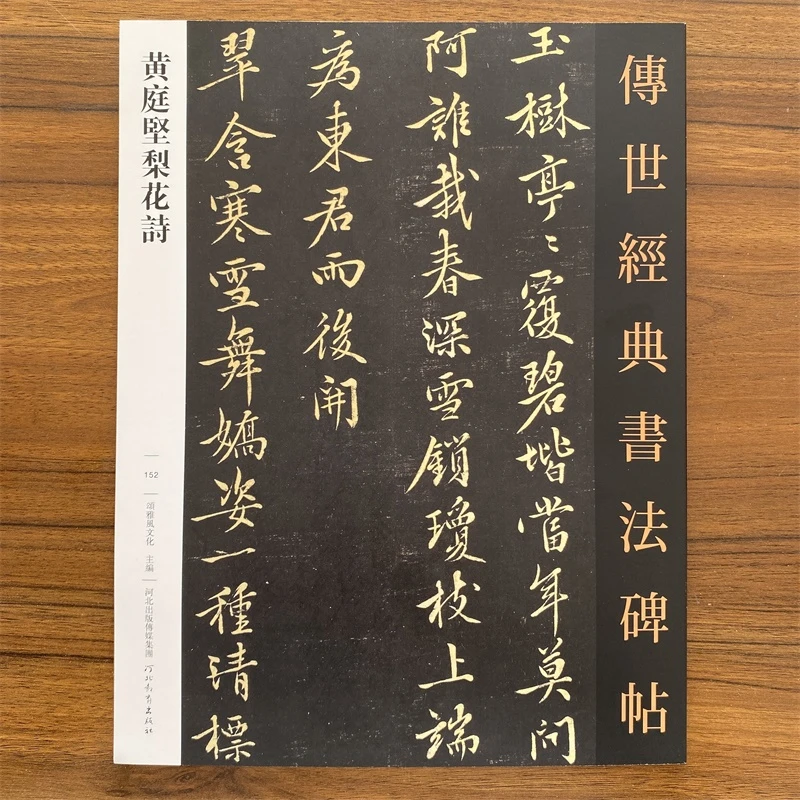 傳世經典書法碑帖
玉樹亭〻覆碧堦當年莫問
阿誰栽春深雪鎖瓊枝上端
為東君雨後開
翠含寒雪舞嬌姿一種清標
黄庭堅梨花詩
152
頌雅風文化 主編
河北出版傳媒集團
河北教育出版社